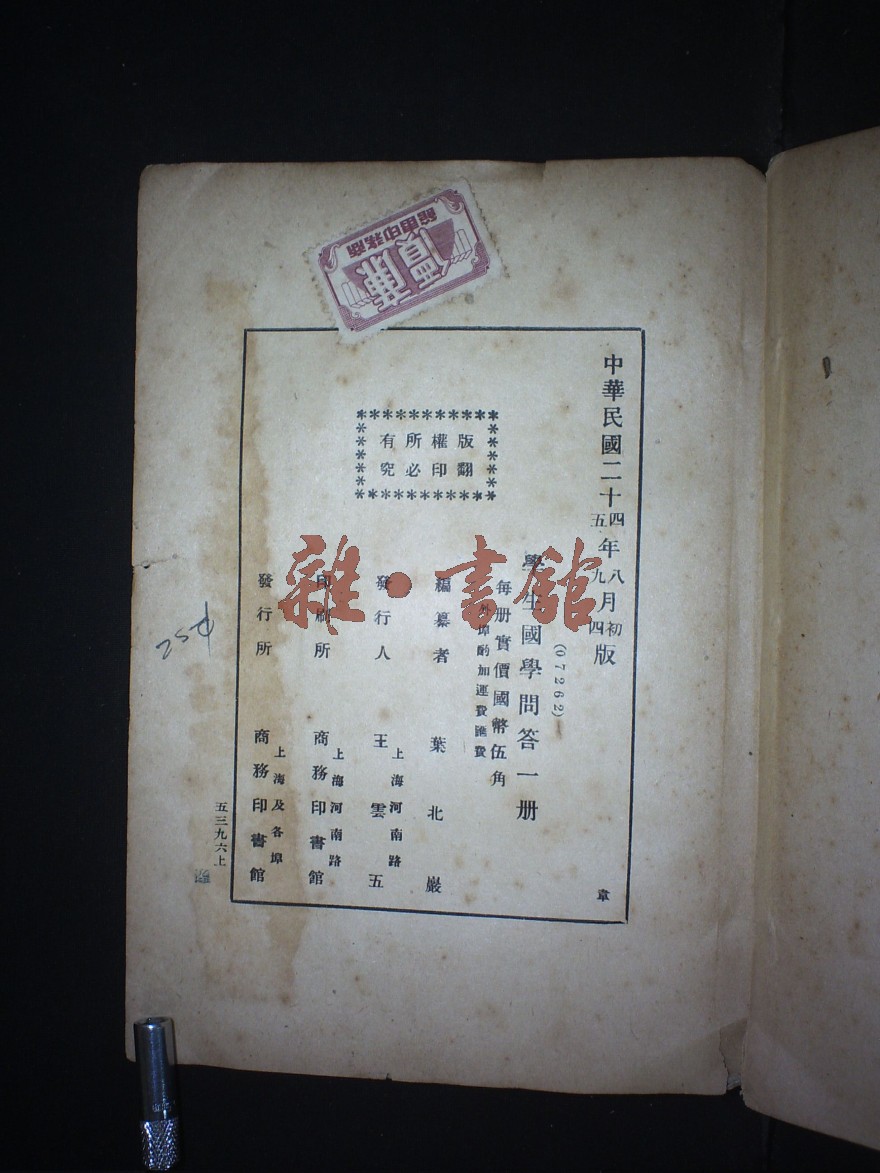 商務印書館
廉價
中華民國二十四年八月初版
五九四
(07262)
學生國學問答一册
每册實價國幣伍角
外埠酌加運費匯費
版權所有
翻印必究
編纂者 葉北巖
發行人 王雲五
上海河南路
印刷所 商務印書館
上海河南路
發行所 商務印書館
上海及各埠
五三九六上
章
雜·書館